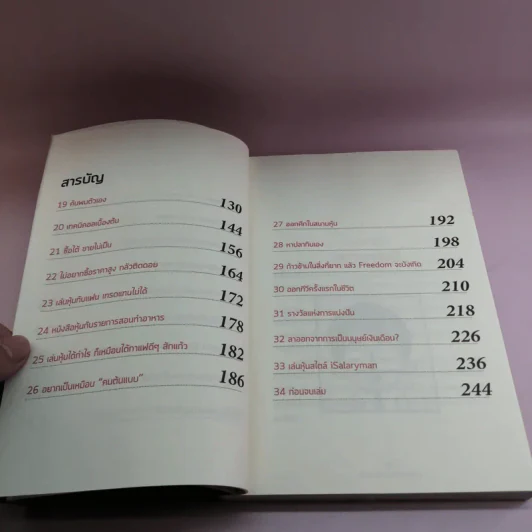 สารบัญ
19 ค้นพบตัวเอง 130
20 เทคนิคอลเบื้องต้น 144
21 ซื้อได้ ขายไม่เป็น 156
22 ไม่อยากซื้อราคาสูง กลัวติดดอย 164
23 เล่นหุ้นกับแฟน เทรดแทนไม่ได้ 172
24 หนังสือหุ้นกับรายการสอนทำอาหาร 178
25 เล่นหุ้นได้กำไร ก็เหมือนได้กาแฟดีๆ สักแก้ว 182
26 อยากเป็นเหมือน "คนต้นแบบ" 186
27 ออกศึกในสนามหุ้น 192
28 หาปลากินเอง 198
29 ก้าวข้ามในสิ่งที่ยาก แล้ว Freedom จะบังเกิด 204
30 ออกทีวีครั้งแรกในชีวิต 210
31 รางวัลแห่งการแบ่งปัน 218
32 ลาออกจากการเป็นมนุษย์เงินเดือน? 226
33 เล่นหุ้นสไตล์ iSalaryman 236
34 ก่อนจบเล่ม 244